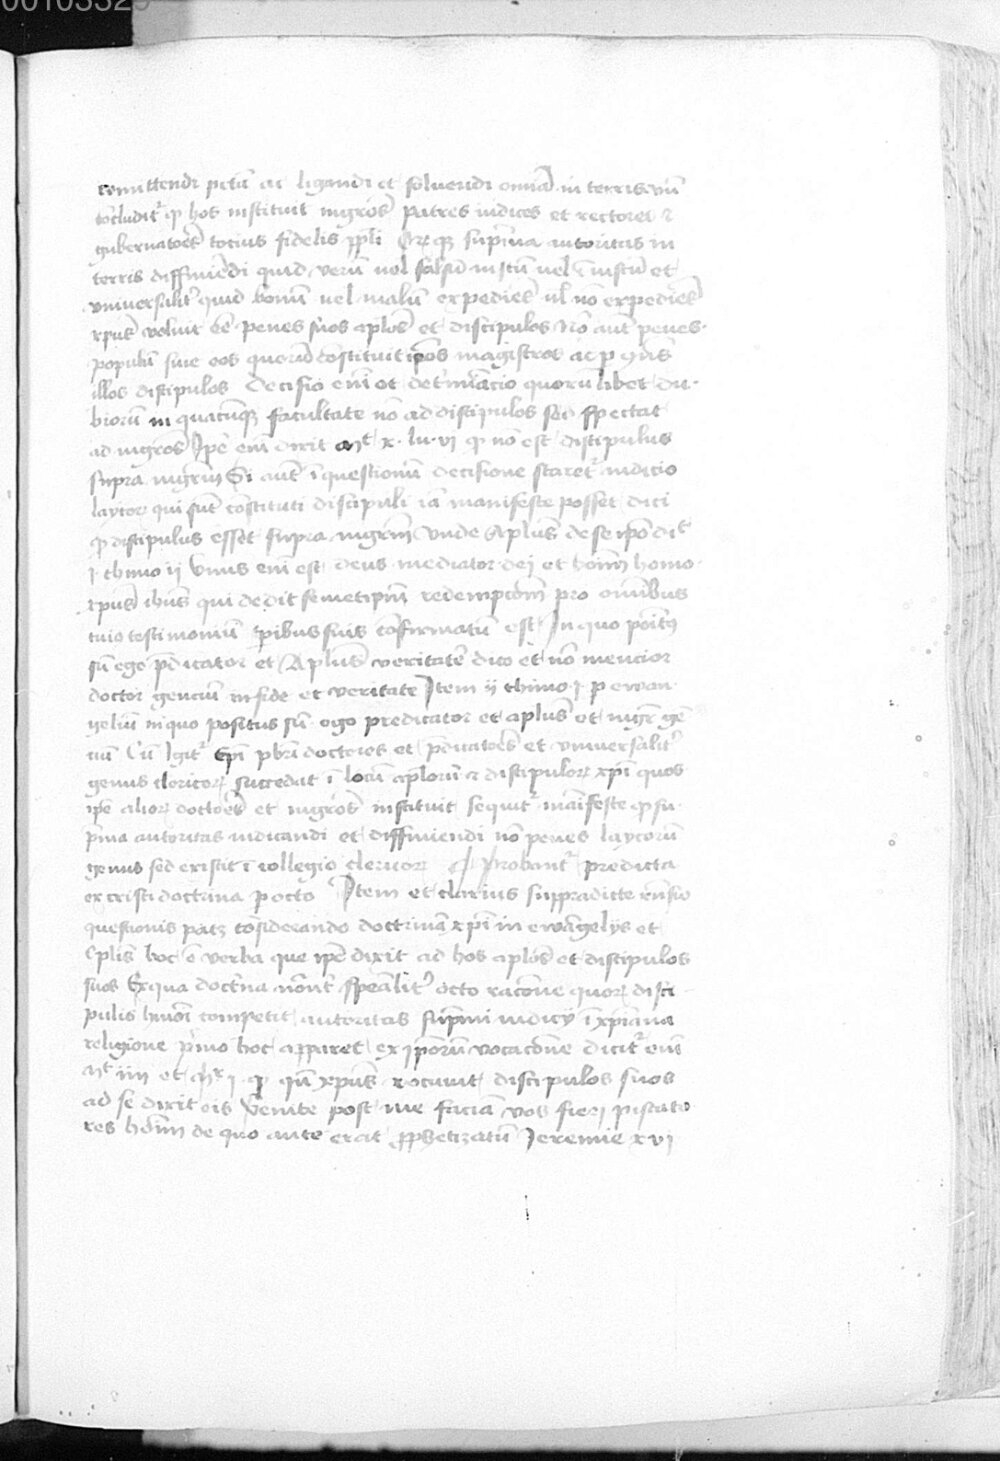 00103329
remittendi pctā ac ligandi et solvendi omīa in terris vnū
cōcludit' qp hos instituit mgrōs patres iudices et rectores et
gubernatorēs tocius fidelis ppli Qr̄ qz supma autoritas in
terris diffiniēdi quid verū uel falsū iustū uel īiustū et
vniversalit' quid bonū uel malū expediēs ul nō expediēs
xpūs voluit eē penes suos aplōs et discipulos Nō aut penes
populū sine eos querū cōstituit ipōs magistros ac p qns
illos discipulos Decisio enī et det'miacio quorūlibet du
biorū in quacūqz facultate nō ad discipulos sed spectat
ad mgrōs Ipē enī dixit mt x lu vi qp nō est discipulus
supra mgrm Si aut ī questionū decisione staret' iudicio
laycorꝝ qui sūt cōstituti discipuli iā manifeste posset dici
qp discipulus esset supra mgrm vnde Aplūs de se ipō dit
j thimo ij Vnus enī est deus mediator dej et hoīm homo
xpūs ihūs qui dedit semetipm redempcōem pro omībus
cuiꝰ testimoniū tpibus suis cōfirmatū est In quo poitꝰ
sū ego pdicator et Aplūs veritatē dico et nō mencior
doctor genciū in fide et veritate Item ij thimo j p ewan
geliū in quo positus sū ego predicator et aplūs et mgr gē
ciū Cū Igit' Epī pbri doctores et pdicatorēs et vniversalit'
genus clericorꝝ succedāt ī locū aplorū et discipulorꝝ xpi quos
ipē aliorꝝ doctorēs et mgrōs instituit sequit' maifeste qp su
pma autoritas iudicandi et diffiniendi nō penes laycorū
genus sed existit ī collegio clericorꝝ Probant' predicta
ex cristi doctrina p octo Item et clarius suppradicte rn̄sio
questionis patz cōsiderando doctrinā xpi in ewāgelijs et
Eplis hoc ē verba que ipē dixit ad hos aplōs et discipulos
suos Ex qua doct'na nōnt' spealit' octo racōne quorꝝ disci
pulis hmōi competit autoritas supmi iudicij ī xpiana
religione p'mo hoc apparet ex ipōrū vocacōne dicit' enī
Mt iiij et Mr j qp qn xpūs vocavit discipulos suos
ad se dixit eis Venite post me faciā vos fierj piscato
res hōim de quo ante erat pphetizatū Jeremie xvj